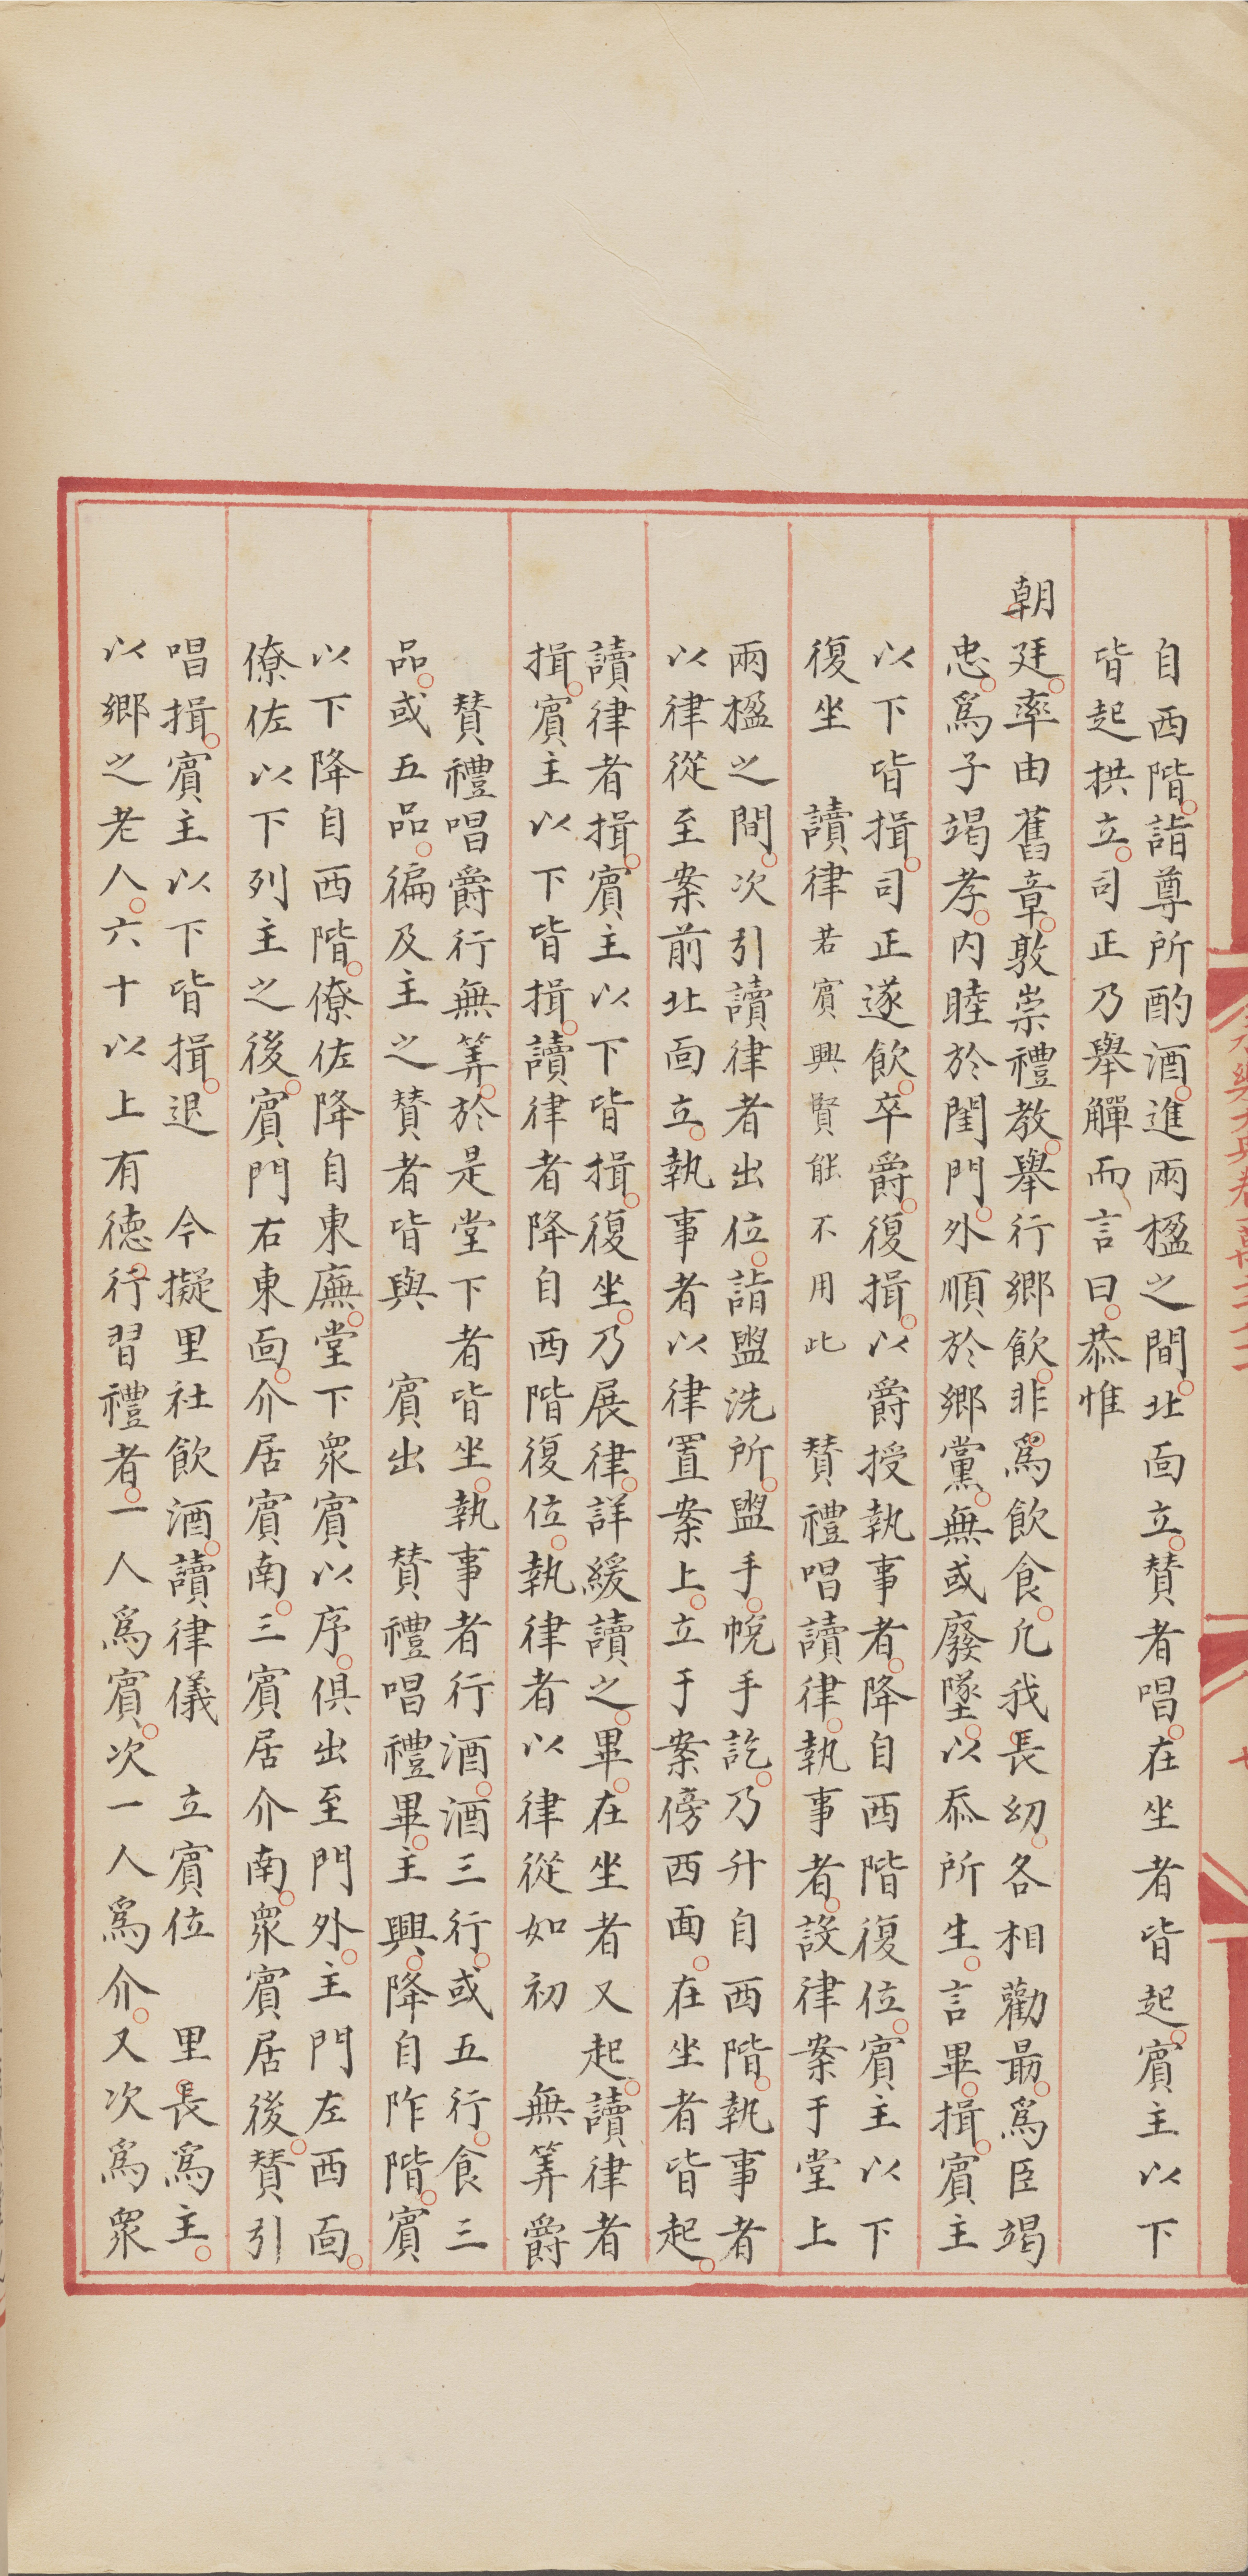 自西階。詣尊所酌酒。進兩楹之間。北靣立。賛者唱。在坐者皆起。賓主以下
皆起拱立。司正乃舉觶而言曰。恭惟
朝廷。率由舊章。敦崇禮教。舉行鄉飲。非爲飲食。凢我長㓜。各相勸朂。爲臣竭
忠。爲子竭孝。内睦於閨門。外順於鄉黨。無或廢墜。以忝所生。言畢。揖。賓主
以下皆揖。司正遂飲。卒爵。復揖。以爵授執事者。降自西階復位。賓主以下
復坐　讀律若賓興賢能不用此　賛禮唱讀律。執事者。設律案于堂上
兩楹之間。次引讀律者出位。詣盥洗所。盥手。帨手訖。乃升自西階。執事者
以律從至案前北靣立。執事者以律置案上。立于案傍西面。在坐者皆起。
讀律者揖。賓主以下皆揖。復坐。乃展律。詳緩讀之。畢。在坐者又起。讀律者
揖。賓主以下皆揖。讀律者降自西階復位。執律者以律從如初　無筭爵
賛禮唱爵行無筭。於是堂下者皆坐。執事者行酒。酒三行。或五行。食三
品。或五品。徧及主之賛者皆與　賓出　賛禮唱禮畢。主興。降自阼階。賓
以下降自西階。僚佐降自東廡。堂下衆賓以序。俱出至門外。主門左西靣。
僚佐以下列主之後。賓門右東靣。介居賓南。三賓居介南。衆賓居後。賛引
唱揖。賓主以下皆揖。退　今擬里社飲酒。讀律儀　立賓位　里長爲主。
以鄉之老人。六十以上有德。行習禮者。一人爲賓。次一人爲介。又次爲衆